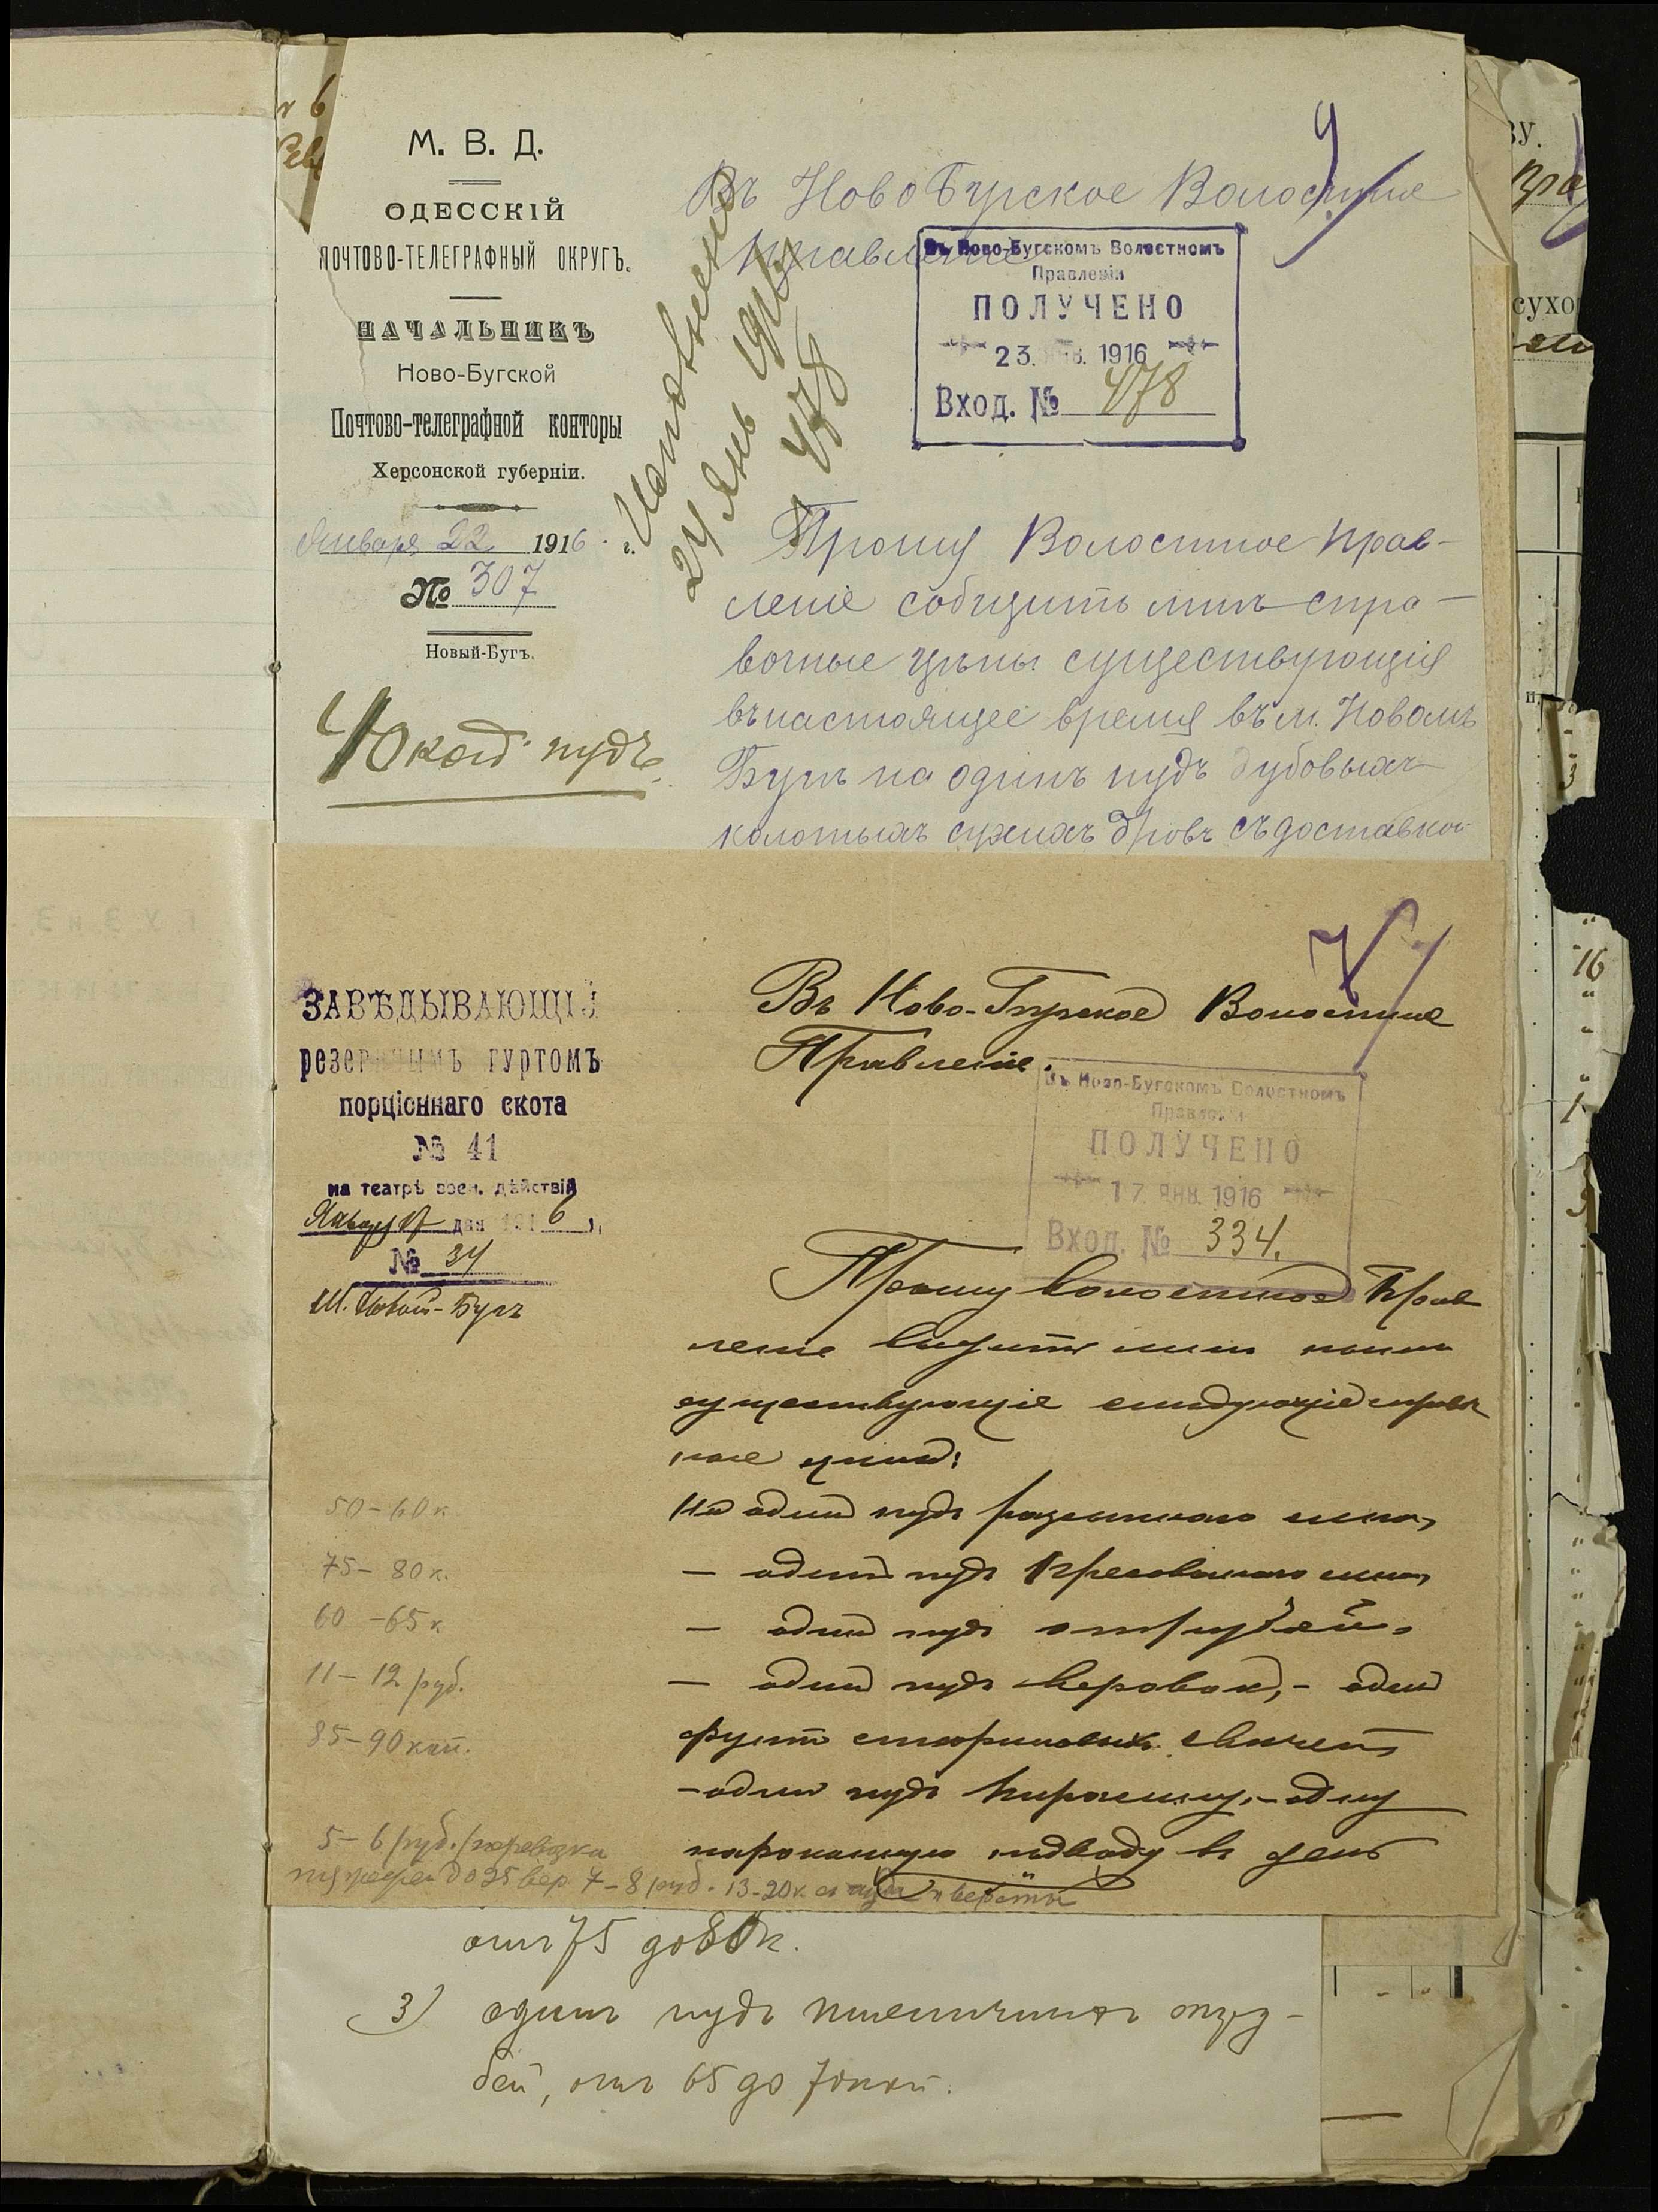 М. В. Д.
ОДЕССКІЙ
ПОЧТОВО-ТЕЛЕГРАФНЫЙ ОКРУГЪ.
НАЧАЛЬНИКЪ
Ново-Бугской
Почтово-телеграфной конторы
Херсонской губерніи.
Января 22 1916 г.
№ 307
Новый-Бугъ.
40 коп. пудъ.
Исполнено
24 Янв. 1916
№ 478
9
Въ Ново Бугское Волостное
Правленіе
Въ Ново-Бугскомъ Волостномъ
Правленіи
ПОЛУЧЕНО
23. ЯНВ. 1916
Вход. № 478
Прошу Волостное Прав-
леніе сообщить мнѣ спра-
вочные цѣны существующія
въ настоящее время въ м. Новомъ
Бугѣ на одинъ пудъ дубовыхъ
колотыхъ сухихъ дровъ съ доставкою
ЗАВѢДЫВАЮЩІЙ
резервнымъ гуртомъ
порціоннаго скота
№ 41
на театрѣ воен. дѣйствій
Января 17 дня 1916 г.
№ 34
М. Новый-Бугъ
Въ Ново-Бугское Волостное
Правленіе.
Въ Ново-Бугскомъ Волостномъ
Правленіи
ПОЛУЧЕНО
17. ЯНВ. 1916
Вход. № 334.
Прошу Волостное Прав
леніе
существующіе слѣдующіе справоч
ные цѣны:
50-60 к. На один пудъ разсыпного сѣна,
75-80 к. — один пудъ прессованного сѣна,
60-65 к — один пудъ отрубей,
11-12 руб. — один пудъ веровок, - один
85-90 коп. фунт стеариновых свѣчей,
- один пудъ киросину, - одну
5-6 руб. перевозка пароконную подводу в день
до 25 вер. 7-8 руб. 13-20 к. с пуда и версты
отъ 75 до 80 к.
3) одинъ пудъ пшеничныхъ отру-
бей, отъ 65 до 70 коп.